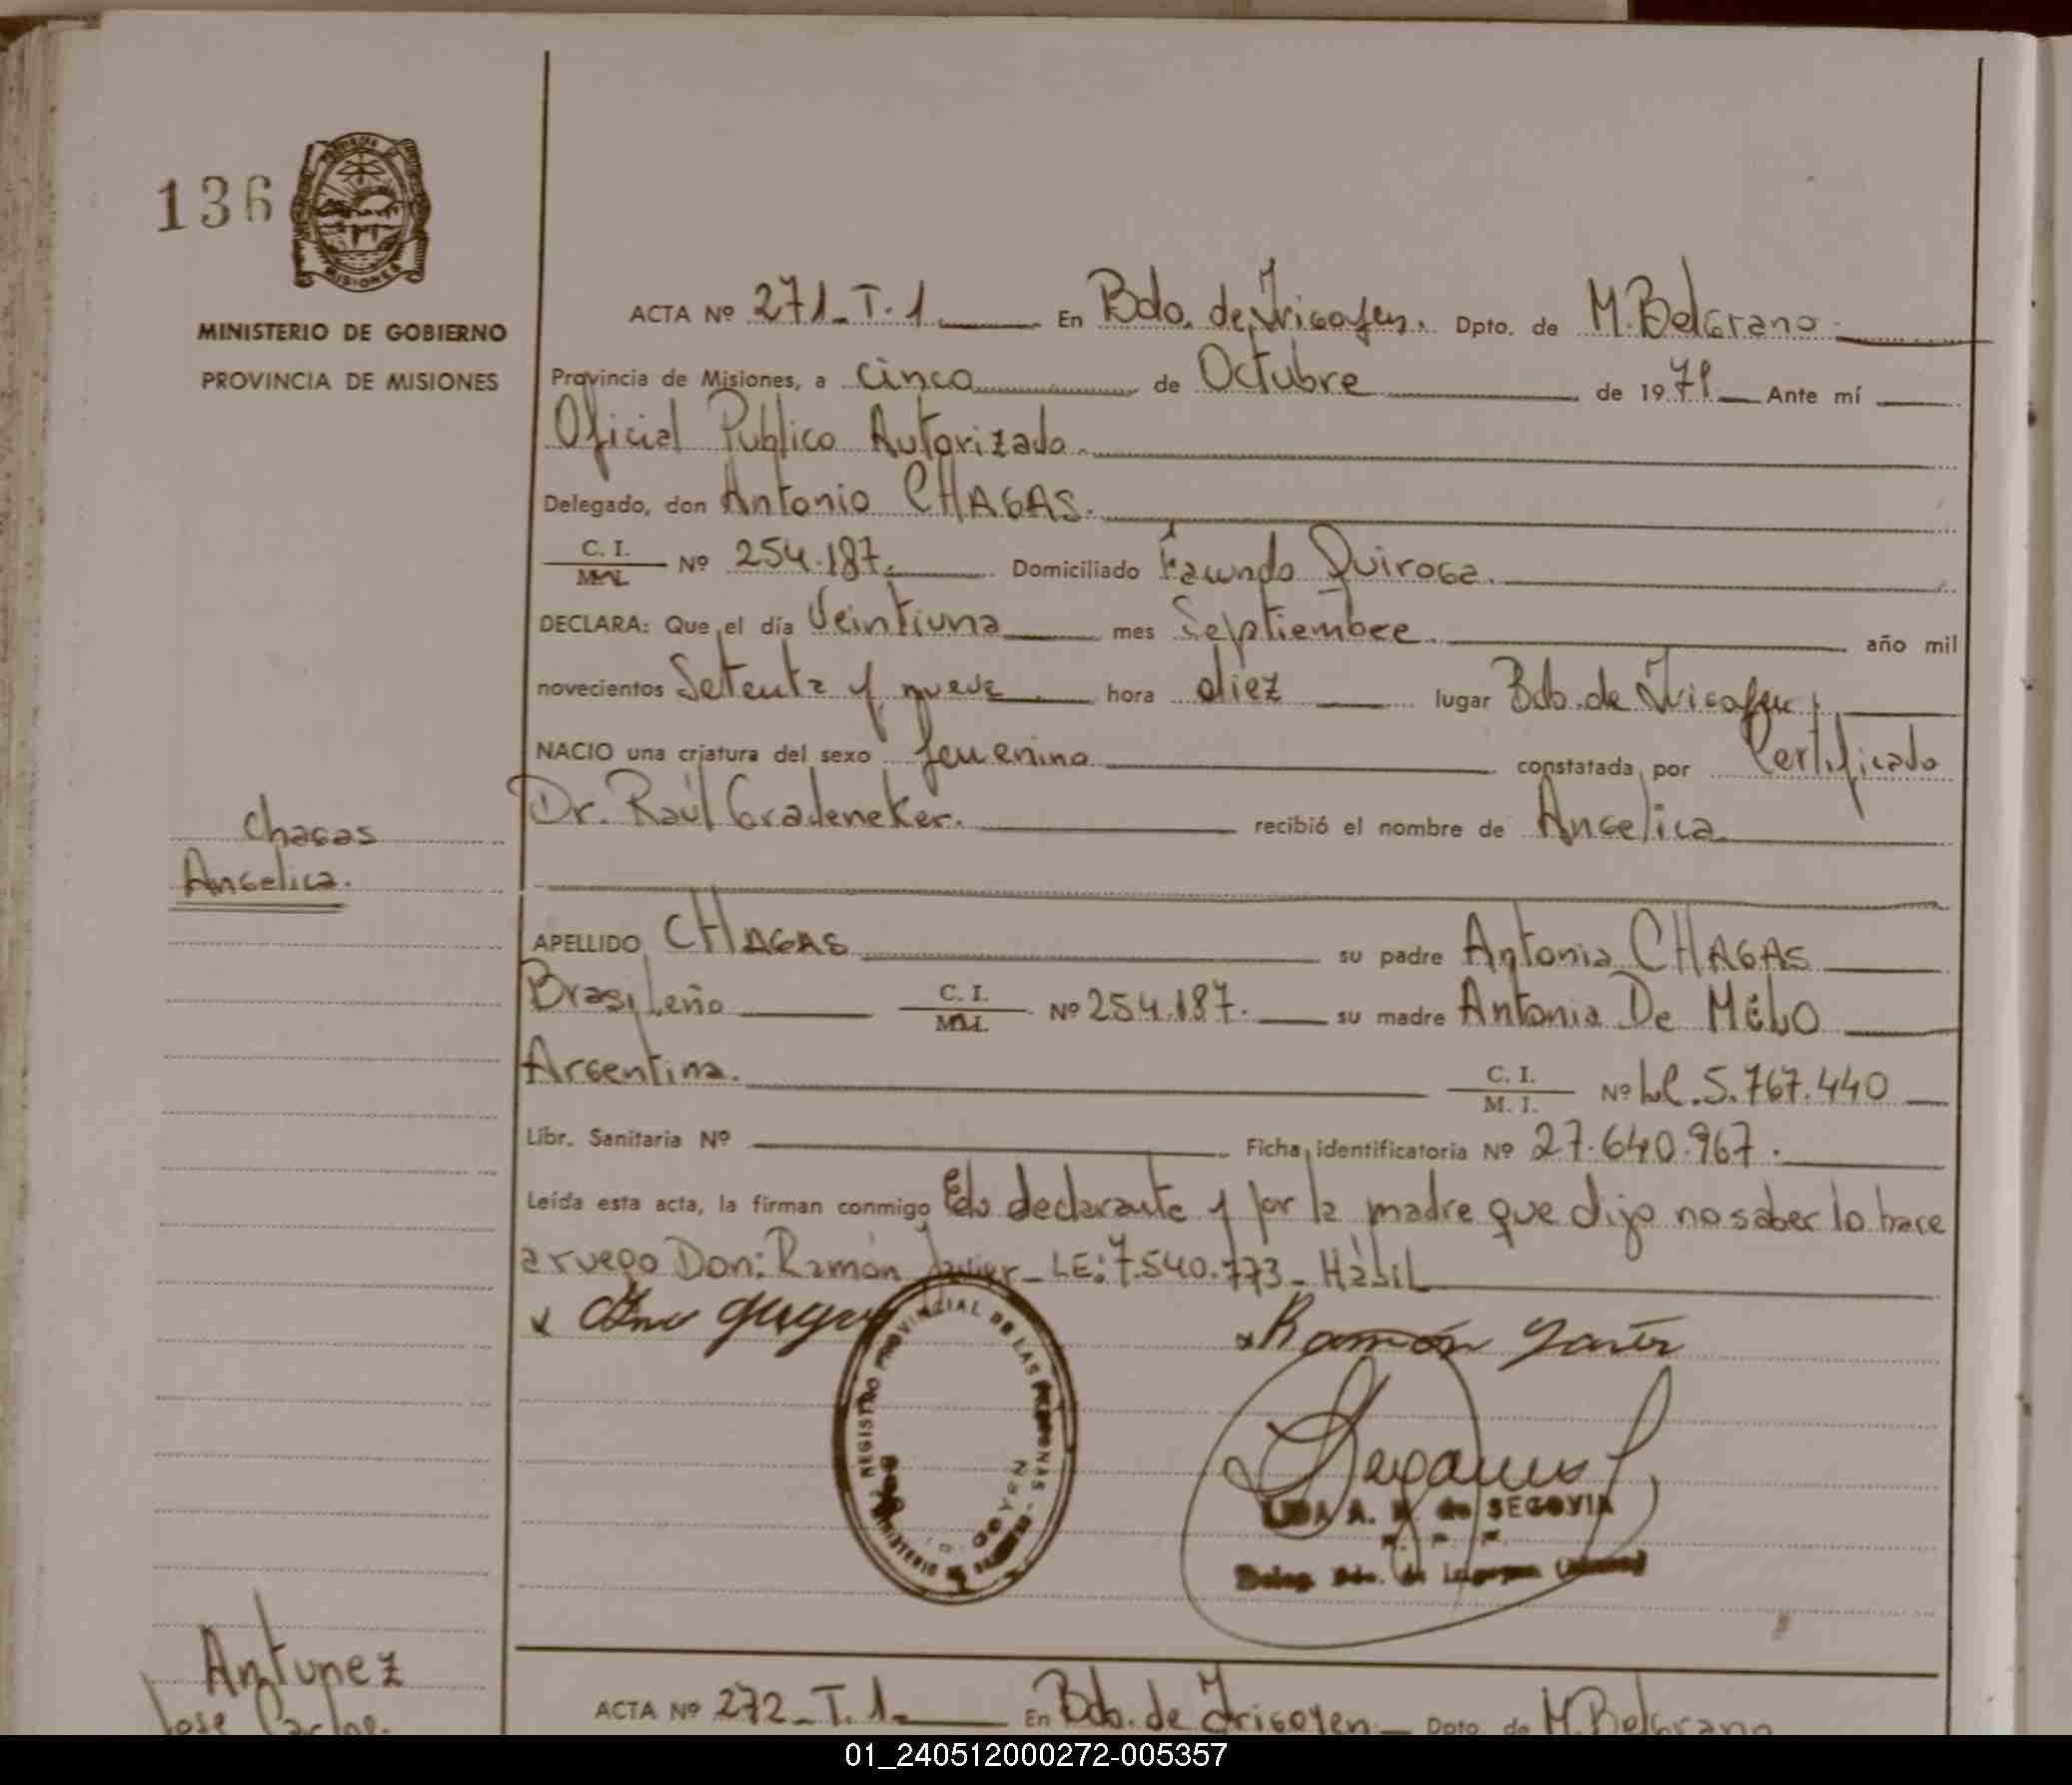 136
MISIONES
MINISTERIO DE GOBIERNO
PROVINCIA DE MISIONES
ACTA Nº 271_T.1 En Bdo. de Irigoyen. Dpto. de M. Belgrano.
Provincia de Misiones, a cinco de Octubre de 1979 Ante mí
Oficial Publico Autorizado.
Delegado, don Antonio CHAGAS.
C. I. Nº 254.187. Domiciliado Facundo Quiroga.
DECLARA: Que el día Veintiuno mes Septiembre año mil
novecientos Setenta y nueve hora diez lugar Bdo. de Irigoyen
NACIO una criatura del sexo femenino constatada por Certificado
Dr. Raúl Gradeneker. recibió el nombre de Angelica
Chagas
Angelica.
APELLIDO CHAGAS su padre Antonio CHAGAS
Brasileño C. I. Nº 254.187. su madre Antonia De Mélo
Argentina. C. I. M. I. Nº LC. 5.767.440
Libr. Sanitaria Nº Ficha identificatoria Nº 27.640.967.
Leída esta acta, la firman conmigo declarante y por la madre que dijo no saber lo hace
a ruego Don: Ramón Javier_LE: 7.540.773_Hábil
Ramón
REGISTRO PROVINCIAL DE LAS PERSONAS
A. de SEGOVIA
Antunez
Jose Carlos.
ACTA Nº 272_T.1_ En Bdo. de Irigoyen_ Dpto. de M. Belgrano
01_240512000272-005357